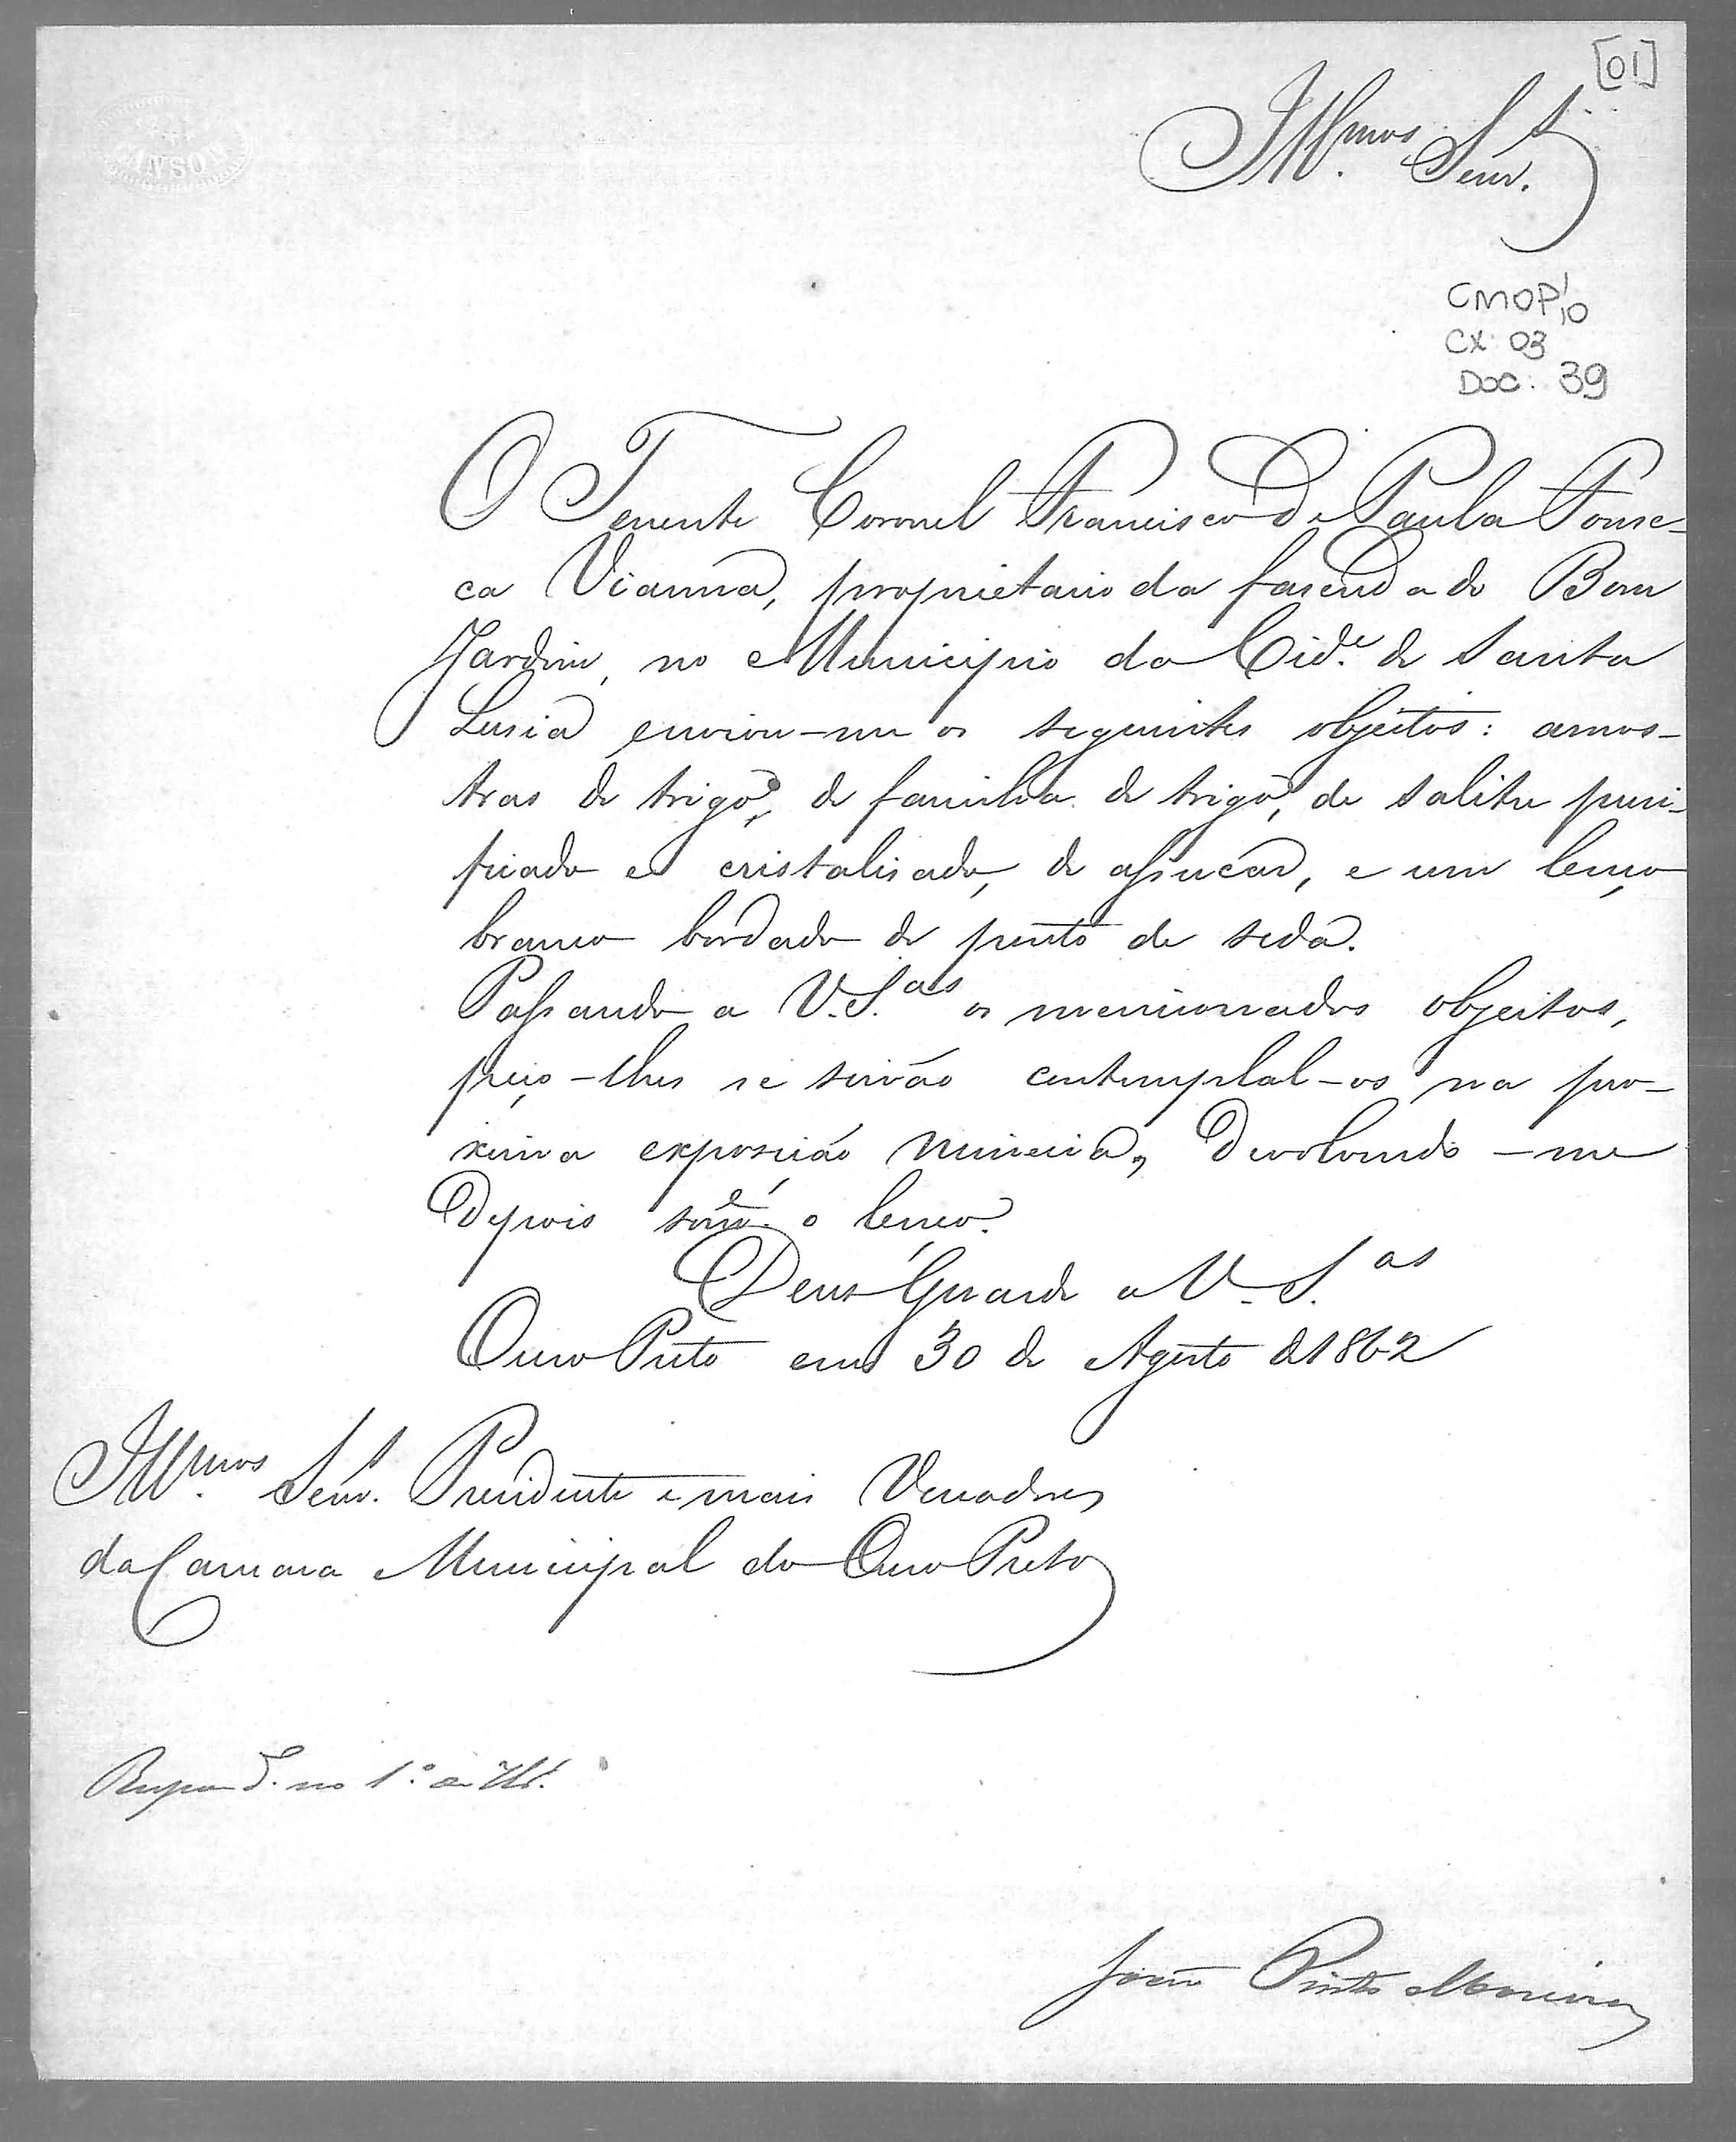 [01]
Ill.mos Senr.s
CMOP 1/10
CX: 03
DOC: 39
O Tenente Coronel Francisco de Paula Fonse-
ca Vianna, proprietario da fasenda do Bom
Jardim, no Municipio da Cid.e de Santa
Lusia enviou-me os seguintes objectos: amos-
tras de trigo, de farinha de trigo, de salitre puri-
ficado e cristalisado, de assucar, e um lenço
branco bordado de ponto de seda.
Passando a V. S.as os mencionados objectos,
peço-lhes se sirvão contemplal-os na pro-
xima exposição mineira, devolvendo-me
depois som.e o lenço.
Deus Guarde a V. S.as
Ouro Preto em 30 de Agosto de 1862
Ill.mos Senr.s Presidente e mais Vereadores
da Camara Municipal do Ouro Preto
Respond. no 1.º de
João Pinto Moreira